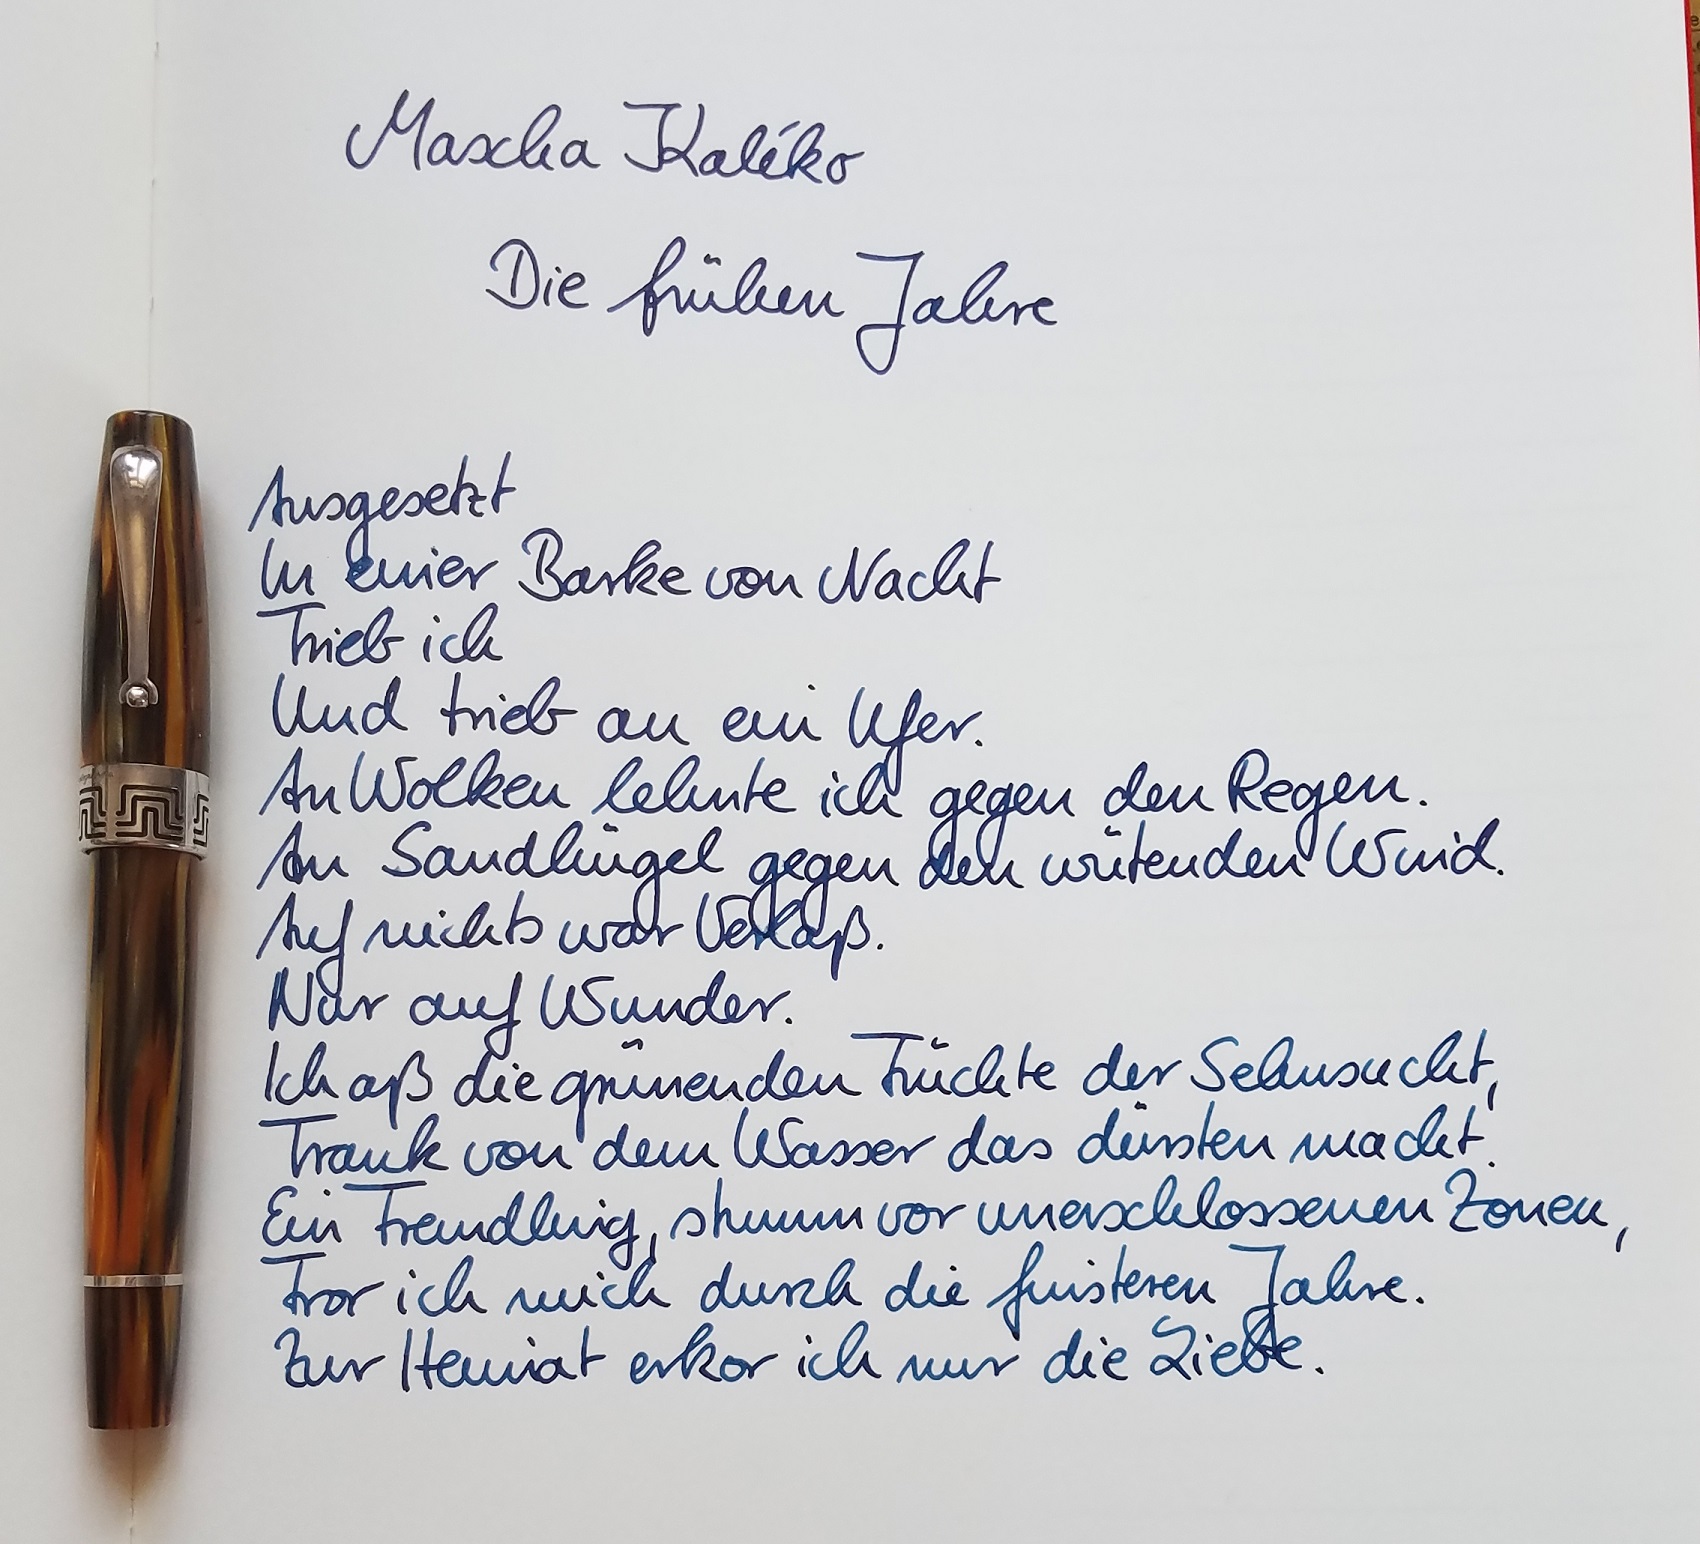 Mascha Kaléko
Die frühen Jahre
Ausgesetzt
In einer Barke von Nacht
Trieb ich
Und trieb an ein Ufer.
An Wolken lehnte ich gegen den Regen.
An Sandhügel gegen den wütenden Wind.
Auf nichts war Verlaß.
Nur auf Wunder.
Ich aß die grünenden Früchte der Sehnsucht,
Trank von dem Wasser das dürsten macht.
Ein Fremdling, stumm vor unerschlossenen Zonen,
Fror ich mich durch die finsteren Jahre.
Zur Heimat erkor ich mir die Liebe.